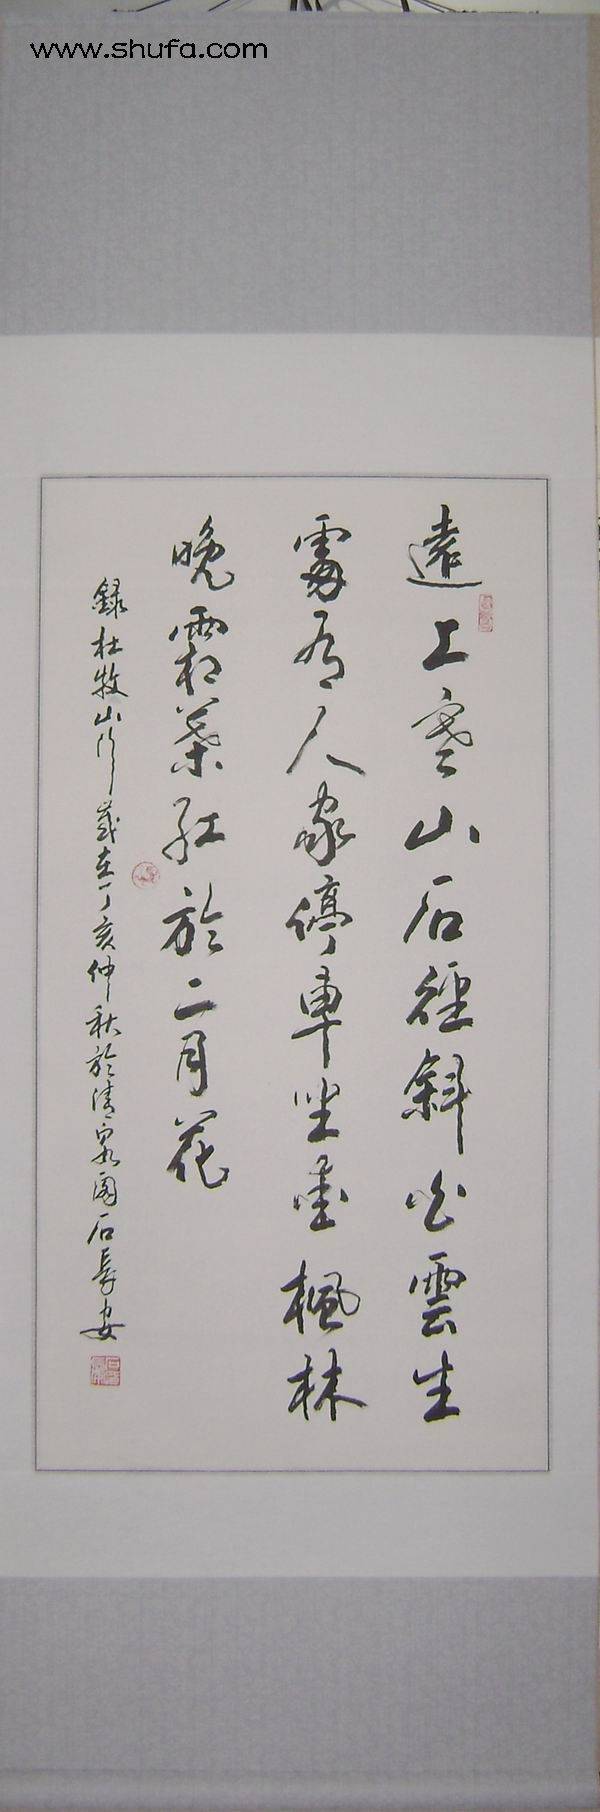 www.shufa.com
遠上寒山石徑斜白雲生
處有人家停車坐愛楓林
晚霜葉紅於二月花
錄杜牧山行歲在丁亥仲秋於清泉園石長安